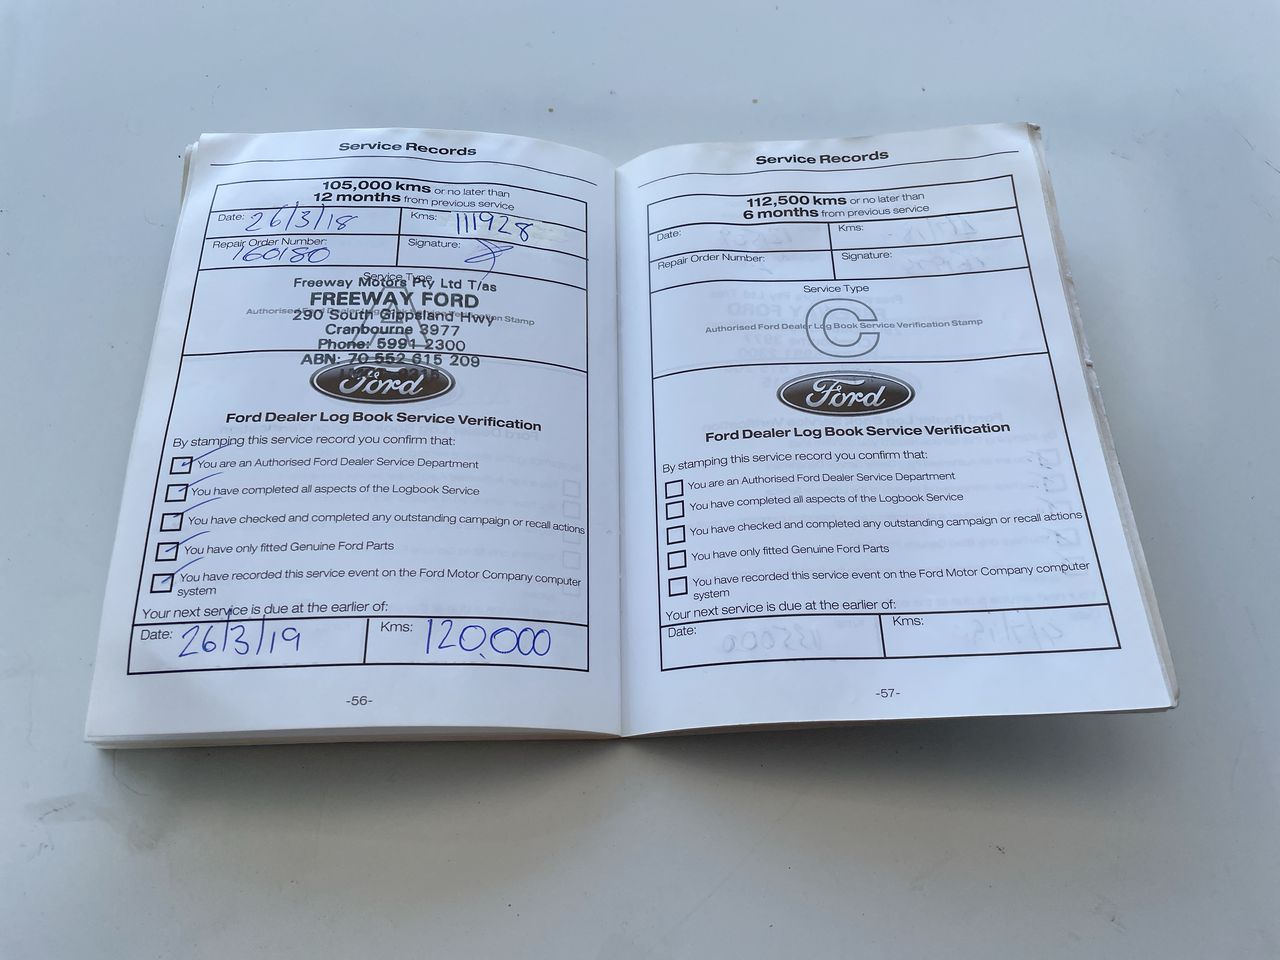 Service Records
105,000 kms or no later than
12 months from previous service
Date: 26/3/18
Kms: 111928
Repair Order Number:
160180
Signature:
Service Type
Freeway Motors Pty Ltd T/as
FREEWAY FORD
Authorised Ford Dealer Log Book Service Verification Stamp
290 South Gippsland Hwy
Cranbourne 3977
Phone: 5991 2300
ABN: 70 552 615 209
Ford
Ford Dealer Log Book Service Verification
By stamping this service record you confirm that:
You are an Authorised Ford Dealer Service Department
You have completed all aspects of the Logbook Service
You have checked and completed any outstanding campaign or recall actions
You have only fitted Genuine Ford Parts
You have recorded this service event on the Ford Motor Company computer
system
Your next service is due at the earlier of:
Date: 26/3/19
Kms: 120,000
-56-
Service Records
112,500 kms or no later than
6 months from previous service
Date:
Kms:
Repair Order Number:
Signature:
Service Type
C
Authorised Ford Dealer Log Book Service Verification Stamp
Ford
Ford Dealer Log Book Service Verification
By stamping this service record you confirm that:
You are an Authorised Ford Dealer Service Department
You have completed all aspects of the Logbook Service
You have checked and completed any outstanding campaign or recall actions
You have only fitted Genuine Ford Parts
You have recorded this service event on the Ford Motor Company computer
system
Your next service is due at the earlier of:
Date:
Kms:
-57-